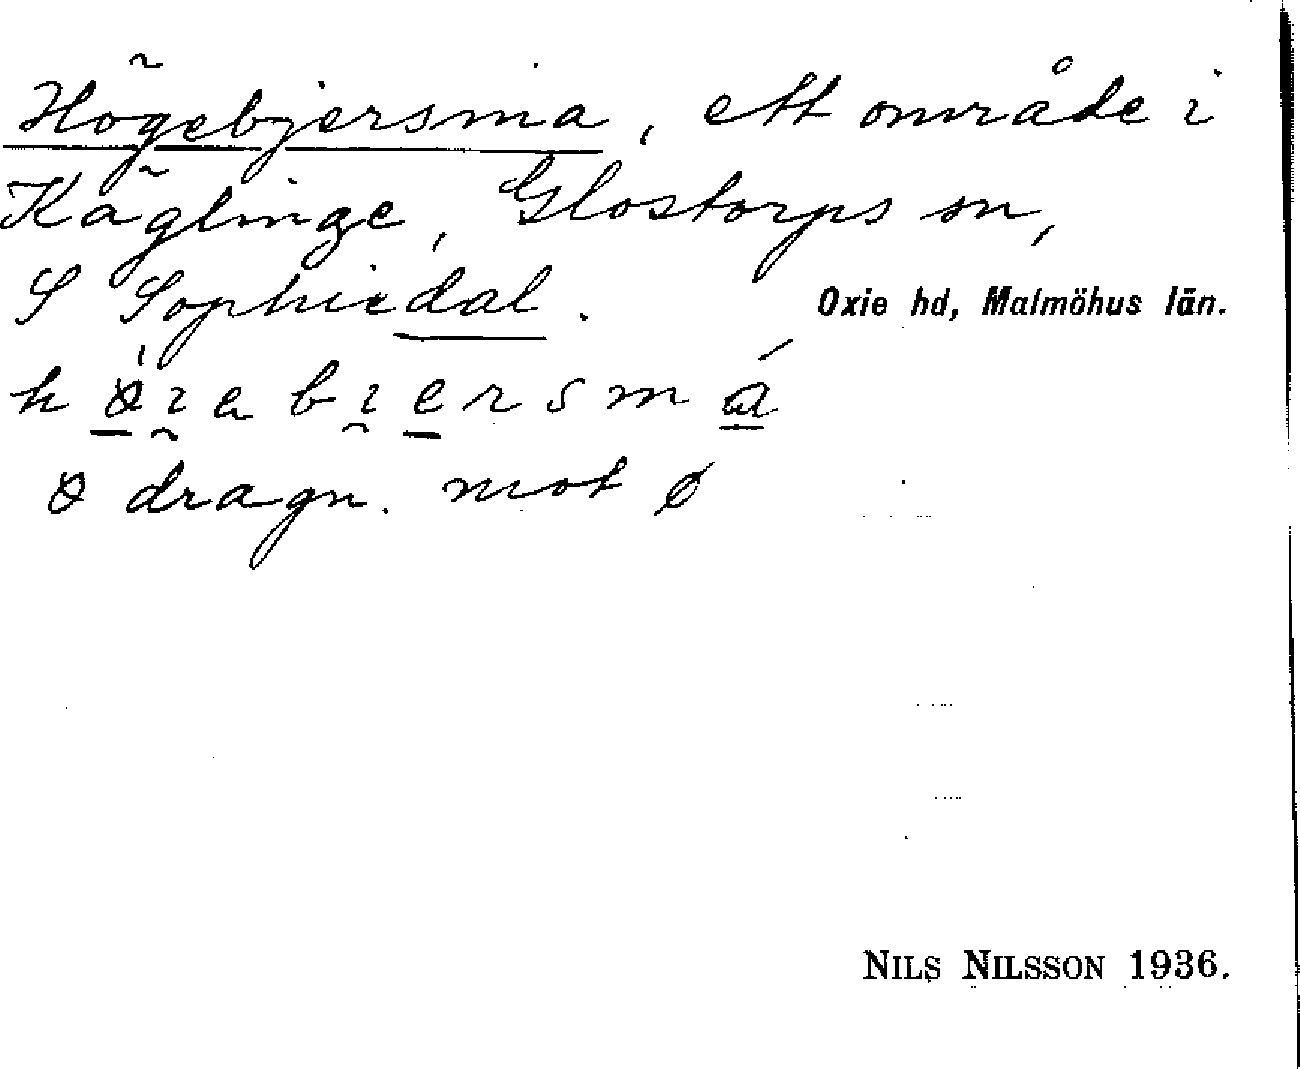 Högebjersma, ett område i
Käglinge, Glostorps sn,
S Sophiedal.
Oxie hd, Malmöhus län.
ö dragn. mot ø
NILS NILSSON 1936.